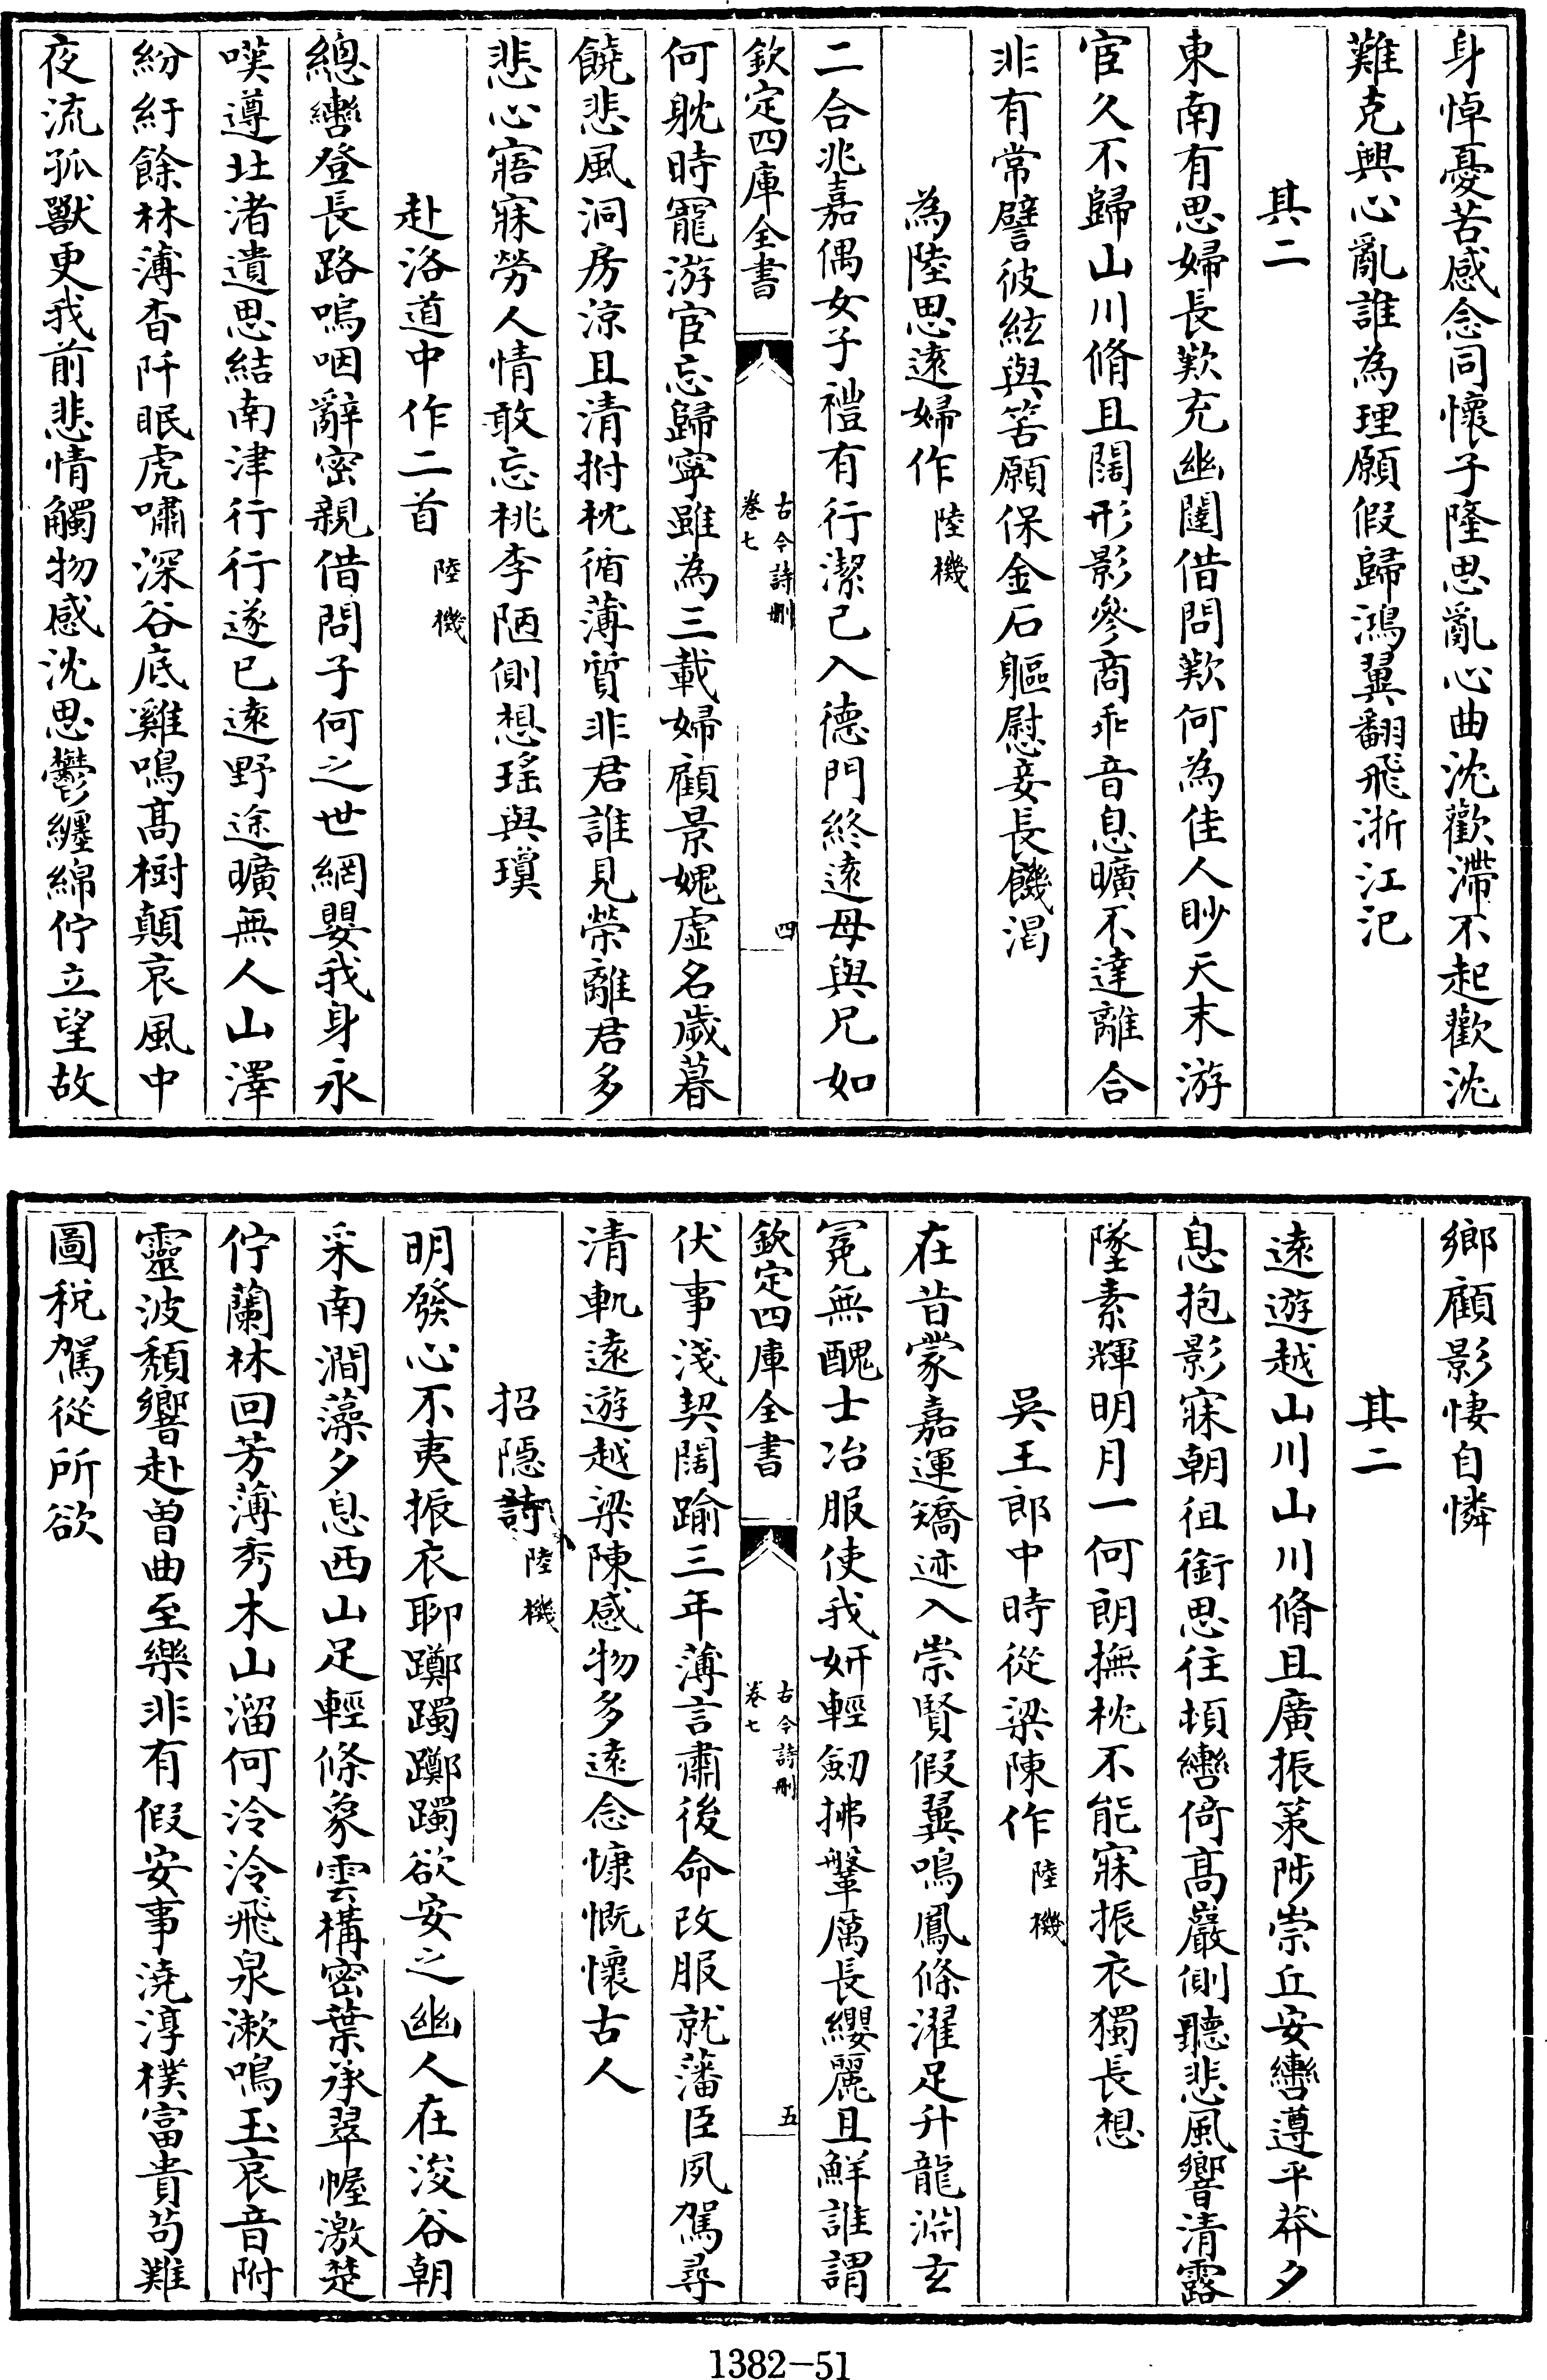 身悼憂苦感念同懷子隆思亂心曲沈歡滯不起歡沈
難克興心亂誰為理願假歸鴻翼翻飛浙江汜
其二
東南有思婦長歎充幽闥借問歎何為佳人眇天末游
宦久不歸山川脩且闊形影參商乖音息曠不達離合
非有常譬彼絃與筈願保金石軀慰妾長饑渴
為陸思遠婦作陸機
二合兆嘉偶女子禮有行潔己入德門終遠母與兄如
欽定四庫全書
古今詩刪
卷七
四
何躭時寵游宦忘歸寧雖為三載婦顧景媿虛名歲暮
饒悲風洞房涼且清拊枕循薄質非君誰見榮離君多
悲心寤寐勞人情敢忘桃李陋側想瑤與瓊
赴洛道中作二首陸機
總轡登長路嗚咽辭密親借問子何之世網嬰我身永
嘆遵北渚遺思結南津行行遂已遠野途曠無人山澤
紛紆餘林薄杳阡眠虎嘯深谷底雞鳴高樹顛哀風中
夜流孤獸更我前悲情觸物感沈思鬱纏綿佇立望故
鄉顧影悽自憐
其二
遠遊越山川山川脩且廣振策陟崇丘安轡遵平莽夕
息抱影寐朝徂銜思往頓轡倚高巖側聽悲風響清露
墜素輝明月一何朗撫枕不能寐振衣獨長想
吳王郎中時從梁陳作陸機
在昔蒙嘉運矯迹入崇賢假翼鳴鳳條濯足升龍淵玄
冕無醜士冶服使我妍輕劒拂鞶厲長纓麗且鮮誰謂
欽定四庫全書
古今詩刪
卷七
五
伏事淺契闊踰三年薄言肅後命改服就藩臣夙駕尋
清軌遠遊越梁陳感物多遠念慷慨懷古人
招隱詩陸機
明發心不夷振衣聊躑躅躑躅欲安之幽人在浚谷朝
采南澗藻夕息西山足輕條象雲構密葉承翠幄激楚
佇蘭林回芳薄秀木山溜何泠泠飛泉漱鳴玉哀音附
靈波頹響赴曾曲至樂非有假安事澆淳樸富貴茍難
圖稅駕從所欲
1382-51